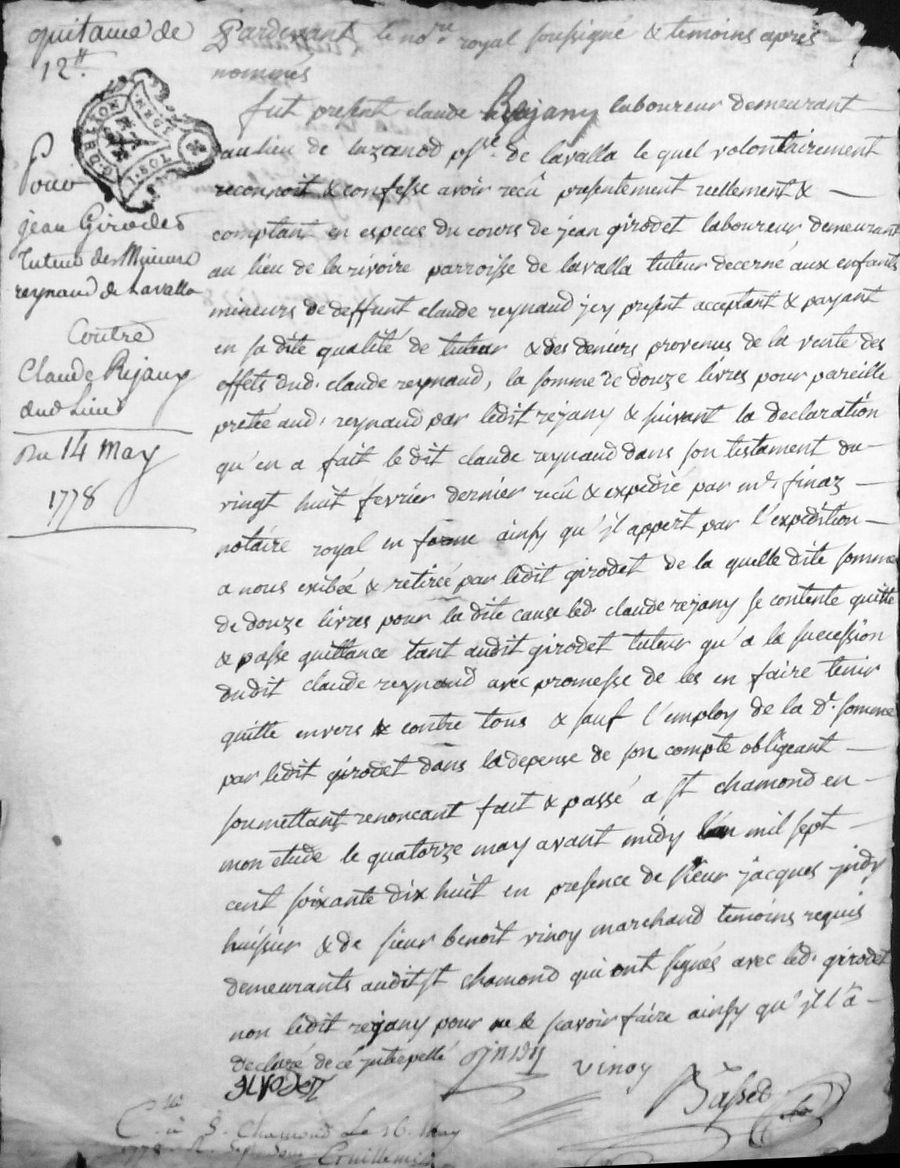 quitance de
12ᵗᵗ
G. D. LYON
1. SOL
Pour
jean Girodet
tuteur des Mineurs
reynaud de Lavalla
Contre
Claude Rejany
dud. Lieu
Du 14 May
1778
Pardevant le noʳᵉ royal soussigné & temoins après
nommés
fut present claude Rejany laboureur demeurant
au lieu de luzenod pˢˢᵉ de lavalla le quel volontairement
reconnoit & confesse avoir recû presentement reellement &
comptant en especes du cours de jean girodet laboureur demeurant
au lieu de la rivoire parroisse de lavalla tuteur decerné aux enfants
mineurs de deffunt claude reynaud jcy present acceptant & payant
en sa dite qualité de tuteur & des deniers provenus de la vente des
effets dud. claude reynaud, la somme de douze livres pour pareille
pretée aud. reynaud par ledit rejany & suivant la declaration
qu'en a fait le dit claude reynaud dans son testament du
vingt huit fevrier dernier recû & expedié par mᵉ. finaz
notaire royal en forme ainsy qu'jl appert par l'expedition
a nous exibéé & retiréé par ledit girodet de la quelle dite somme
de douze livres pour la dite cause led. claude rejany se contente quitte
& passe quittance tant audit girodet tuteur qu'a la succession
dudit claude reynaud avec promesse de les en faire tenir
quitte envers & contre tous & sauf l'employ de la dᵉ. somme
par ledit girodet dans la depense de son compte obligeant
soumettant renoncant fait & passé a sᵗ chamond en
mon etude le quatorze may avant midy l'an mil sept
cent soixante dix huit en presence de sieur jacques
huissier & de sieur benoit vinoy marchand temoins requis
demeurants audit sᵗ chamond qui ont signés avec led. girodet
non ledit rejany pour ne le scavoir faire ainsy qu'jl l'a
declaré de ce jnterpellé
vinoy
Basset
Cˡᵉ à S. Chamond Le 16. may
1778